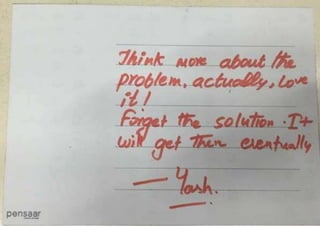 Think more about the
problem, actually, love
it!
Forget the solution. It
will get there eventually
— Yash.
pensaar